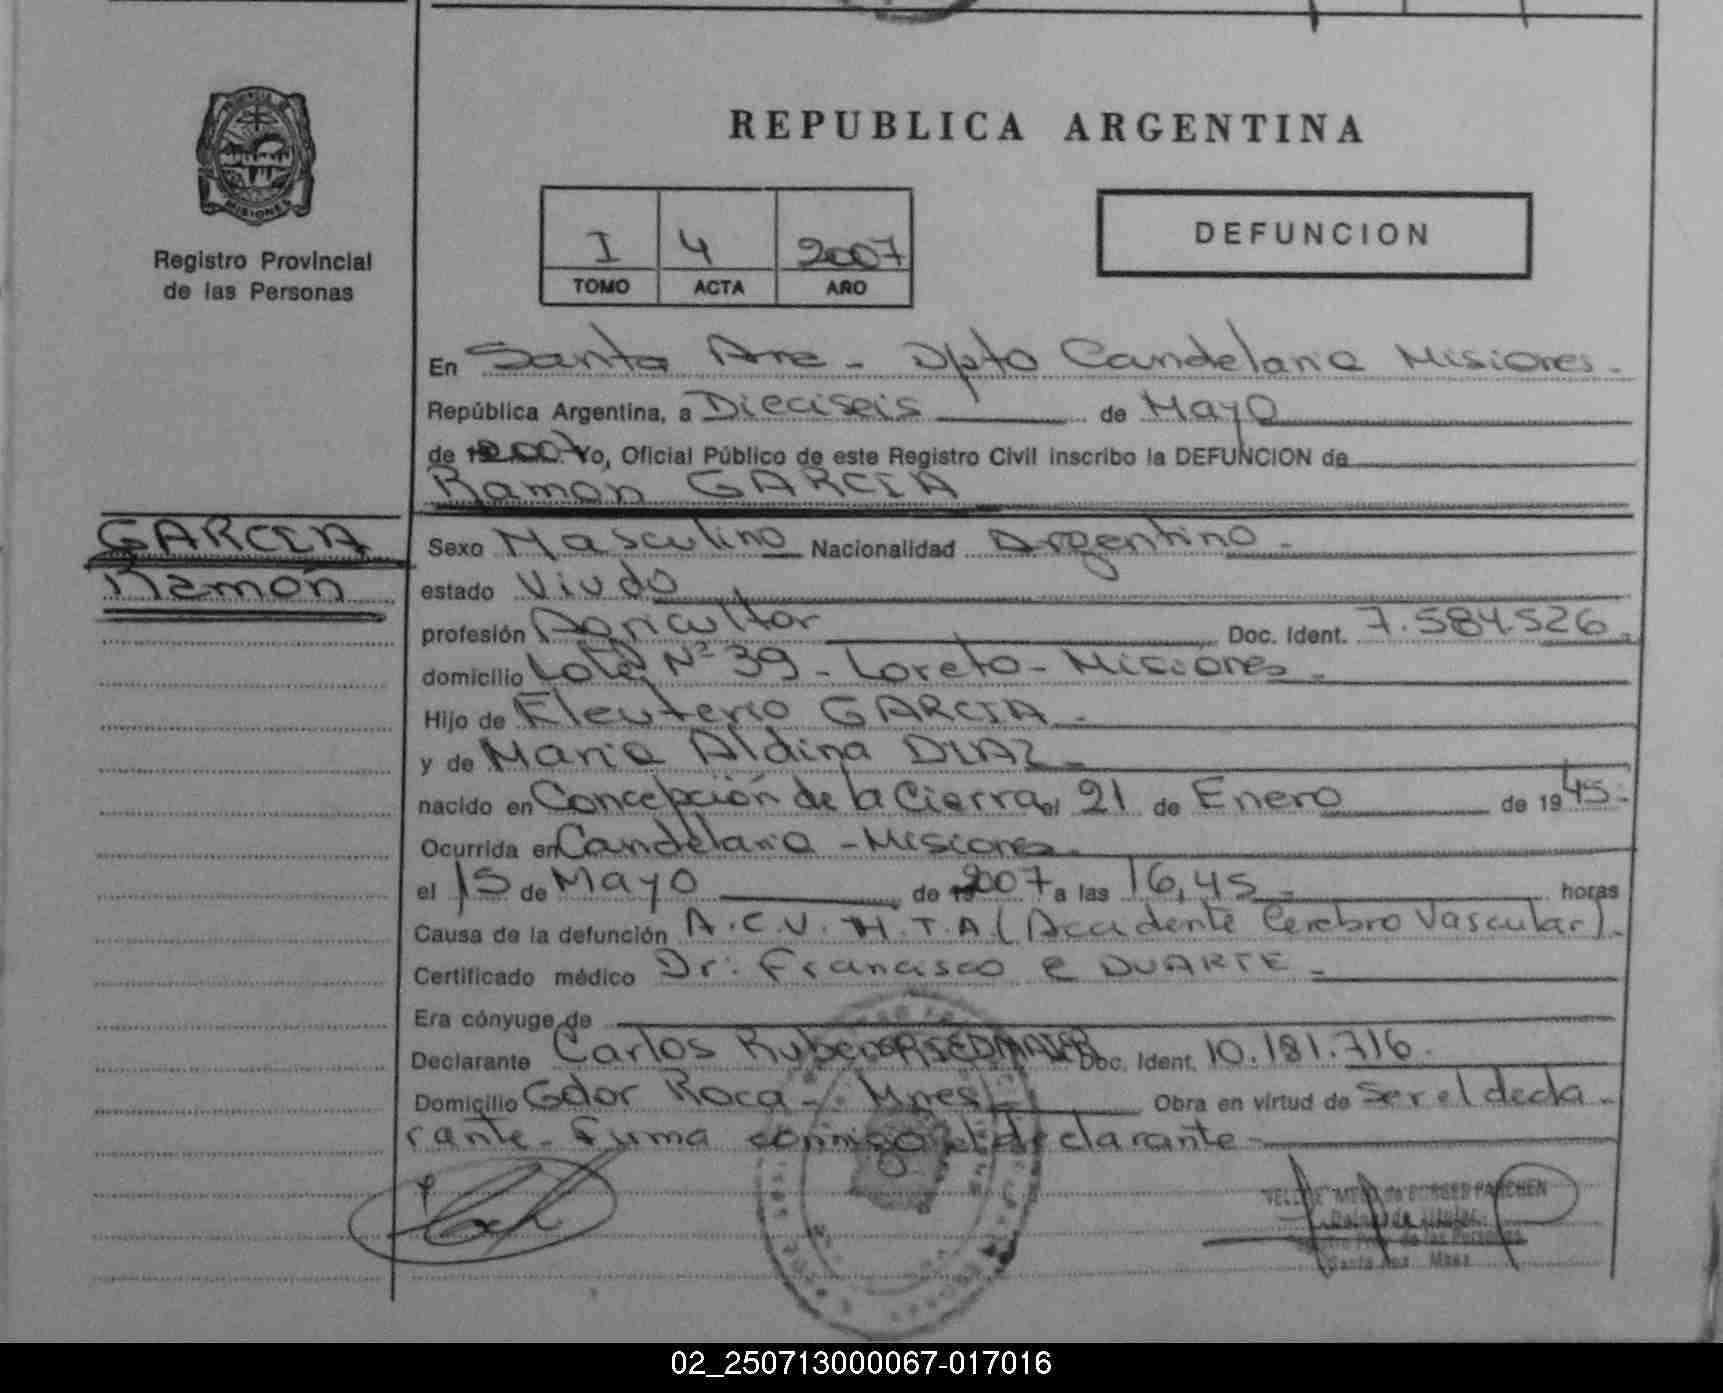 REPUBLICA ARGENTINA
PROVINCIA DE
MISIONES
Registro Provincial
de las Personas
I 4 2007
TOMO ACTA AÑO
DEFUNCION
En Santa Ana - Dpto Candelaria Misiones -
República Argentina, a Dieciseis de Mayo
de 2007 Yo, Oficial Público de este Registro Civil inscribo la DEFUNCION de
Ramon GARCIA
GARCIA
Ramón
Sexo Masculino Nacionalidad Argentino -
estado Viudo
profesión Agricultor Doc. Ident. 7.584.526 -
domicilio Lote Nº 39 - Loreto - Misiones -
Hijo de Eleuterio GARCIA -
y de Maria Aldina DIAZ -
nacido en Concepción de la Cierra el 21 de Enero de 1945 -
Ocurrida en Candelaria - Misiones -
el 15 de Mayo de 2007 a las 16,45 - horas
Causa de la defunción A.C.V. H.T.A. (Accidente Cerebro Vascular) -
Certificado médico Dr: Francisco e DUARTE -
Era cónyuge de
Declarante Carlos Ruben Doc. Ident. 10.181.716.
Domicilio Gdor Roca - Mnes - Obra en virtud de ser el decla -
rante - firma conmigo el declarante -
DE BORGES PARCHEN
Titular
de las Personas
Santa Ana Mnes
02_250713000067-017016